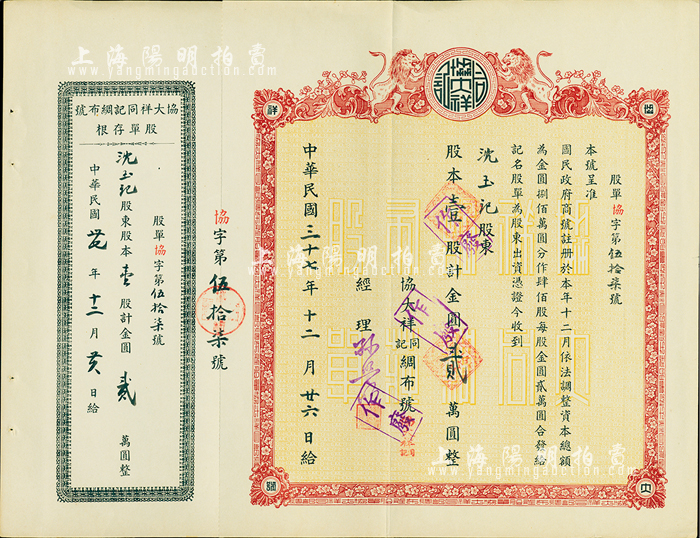 上海陽明拍賣
www.yangmingauction.com
協大祥
同記
協
大
祥
同
股單協字第伍拾柒號
本號呈准
國民政府商號註册於本年十二月依法調整資本總額
為金圓捌佰萬圓分作肆佰股每股金圓貳萬圓合發給
記名股單為股東出資憑證今收到
沈玉記股東
股本壹股計金圓貳萬圓整
協大祥同記綢布號
經理
中華民國三十七年十二月廿六日給
作廢
作廢
作廢
協字第伍拾柒號
協大祥同記綢布號
股單存根
股單協字第伍拾柒號
沈玉記股東股本壹股計金圓貳萬圓整
中華民國卅七年十二月廿六日給
上海陽明拍賣
www.yangmingauction.com
上海陽明拍賣
www.yangmingauction.com